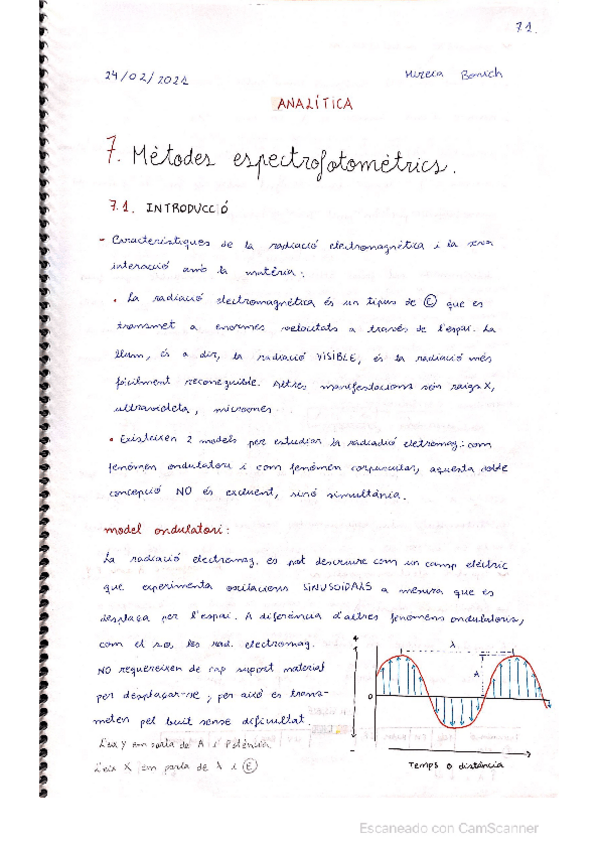 71.
24/02/2021
Mireia Bonich
ANALÍTICA
7. Mètodes espectrofotomètrics.
7.1. INTRODUCCIÓ
- Característiques de la radiació electromagnètica i la seva
interacció amb la matèria:
• La radiació electromagnètica és un tipus de Ⓔ que es
transmet a enormes velocitats a través de l'espai. La
llum, és a dir, la radiació VISIBLE, és la radiació més
fàcilment reconeguible. Altres manifestacions són raigs X,
ultravioleta, microones...
• Existeixen 2 models per estudiar la radiació eletromag.: com
fenòmen ondulatori i com fenòmen corpuscular, aquesta doble
concepció NO és excluent, sinó simultània.
model ondulatori:
La radiació electromag. es pot descriure com un camp elèctric
que experimenta oscilacions SINUSOÏDALS a mesura que es
desplaça per l'espai. A diferència d'altres fenomens ondulatoris,
com el so, les rad. electromag.
NO requereixen de cap suport material
per desplaçar-se, per això es trans-
meten pel buit sense dificultat.
L'eix Y em parla de A i Potència
L'eix X em parla de λ i Ⓔ
+
0
-
λ
A
Temps o distància
Escaneado con CamScanner